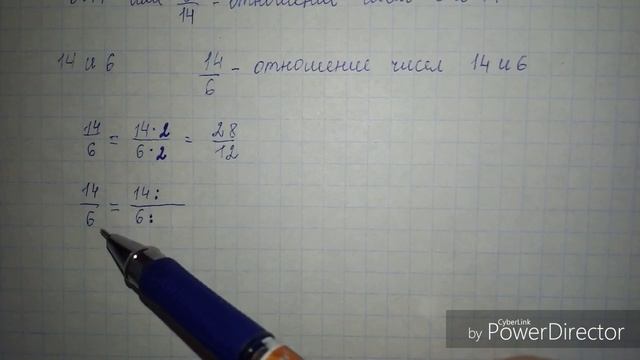 или 6/14 - отношение чисел
14 и 6 14/6 - отношение чисел 14 и 6
14/6 = 14·2/6·2 = 28/12
14/6 = 14:/6:
CyberLink
by PowerDirector